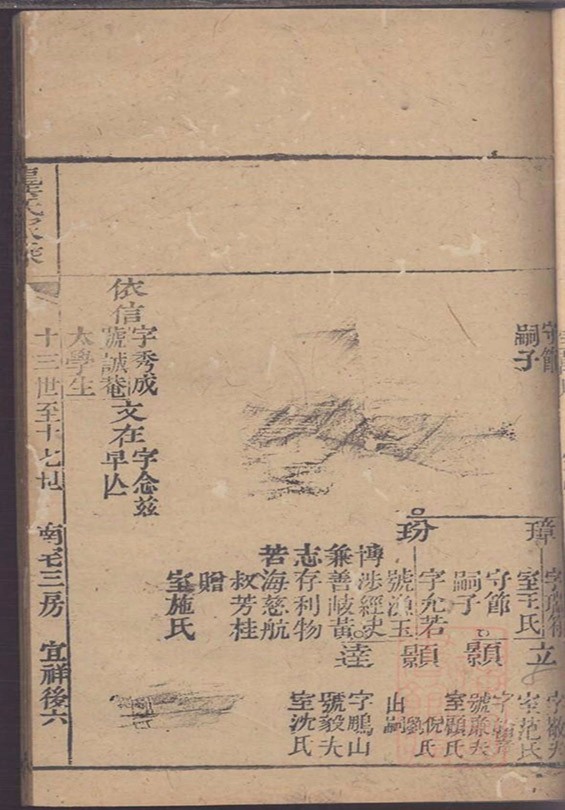 守節
嗣子
璋
室王氏
立
室范氏
守節
嗣子
顯
號肅夫
室顧氏
玢
字允若
號漁玉
博涉經史
兼善岐黃
志存利物
若海慈航
叔芳桂
贈
室施氏
顯
倪氏
劉
出嗣
達
字鵬山
號毅夫
室沈氏
依信
字秀成
號誠菴
太學生
文在
字念茲
早亾
氏家
十三世至十七世
南宅三房
宜祥後六